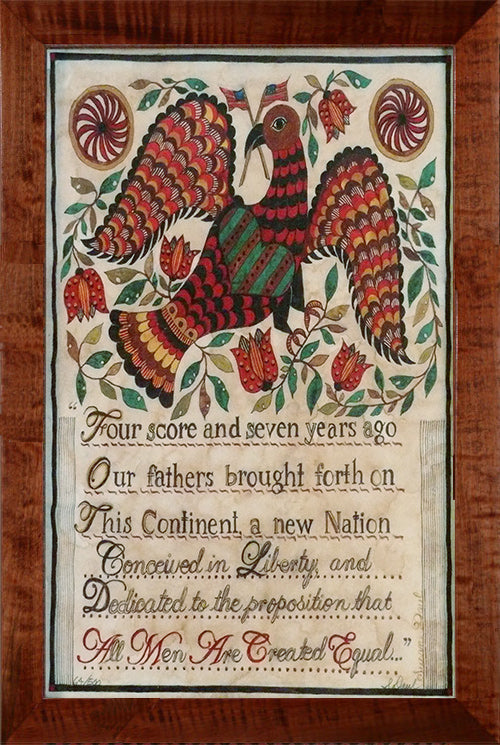 “Four score and seven years ago
Our fathers brought forth on
This Continent, a new Nation
Conceived in Liberty, and
Dedicated to the proposition that
All Men Are Created Equal...”